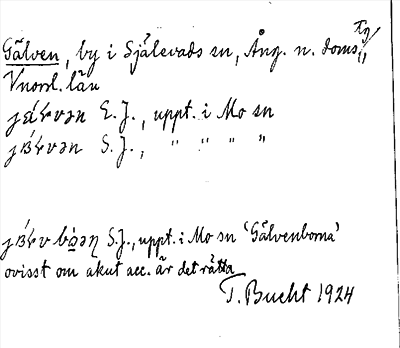 Gälven, by i Själevads sn, Ång. n. doms.
Vnorrl. län
E. J., uppt. i Mo sn
S. J., " " " "
S. J., uppt. i Mo sn 'Gälvenborna'
ovisst om akut acc. är det rätta
T. Bucht 1924